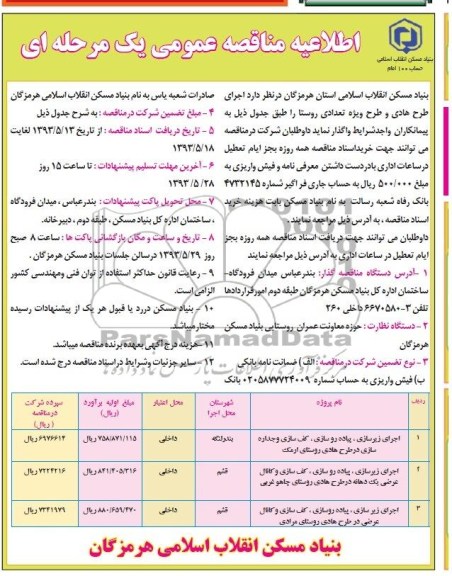 اطلاعیه مناقصه عمومی یک مرحله ای
بنیاد مسکن انقلاب اسلامی
حساب ۱۰۰ امام
بنیاد مسکن انقلاب اسلامی استان هرمزگان درنظر دارد اجرای
طرح هادی و طرح ویژه تعدادی روستا را طبق جدول ذیل به
پیمانکاران واجدشرایط واگذار نماید داوطلبان شرکت درمناقصه
می توانند جهت خریداسناد مناقصه همه روزه بجز ایام تعطیل
درساعات اداری بادردست داشتن معرفی نامه و فیش واریزی به
مبلغ ۵۰۰/۰۰۰ ریال به حساب جاری فراگیر شماره ۴۷۳۲۱۴۵
بانک رفاه شعبه رسالت به نام بنیاد مسکن بابت هزینه خرید
اسناد مناقصه ، به آدرس ذیل مراجعه نمایند .
داوطلبان می توانند جهت دریافت اسناد مناقصه همه روزه بجز
ایام تعطیل در ساعات اداری به آدرس ذیل مراجعه نمایند
۱ -آدرس دستگاه مناقصه گذار: بندرعباس میدان فرودگاه-
ساختمان اداره کل بنیاد مسکن هرمزگان طبقه دوم امورقراردادها
تلفن ۳-۶۶۷۰۵۸۰ داخلی ۲۶۰
۲ - دستگاه نظارت : حوزه معاونت عمران روستایی بنیاد مسکن
هرمزگان
۳ - نوع تضمین شرکت در مناقصه : الف ) ضمانت نامه بانکی
ب) فیش واریزی به حساب شماره ۰۲۰۵۸۷۷۷۲۴۰۰۹ بانک
صادرات شعبه یاس به نام بنیاد مسکن انقلاب اسلامی هرمزگان
۴ - مبلغ تضمین شرکت درمناقصه : به شرح جدول ذیل
۵ - تاریخ دریافت اسناد مناقصه : از تاریخ ۱۳۹۳/۵/۱۳ لغایت
۱۳۹۳/۵/۱۸
۶ - آخرین مهلت تسلیم پیشنهادات : تا ساعت ۱۵ روز
۱۳۹۳/۵/۲۸
۷ - محل تحویل پاکت پیشنهادات : بندرعباس ، میدان فرودگاه
، ساختمان اداره کل بنیاد مسکن ، طبقه دوم ، دبیرخانه .
۸ - تاریخ و ساعت و مکان بازگشائی پاکت ها : ساعت ۸ صبح
روز ۱۳۹۳/۵/۲۹ درسالن جلسات بنیاد مسکن هرمزگان .
۹ - رعایت قانون حداکثر استفاده از توان فنی ومهندسی کشور
الزامی است.
۱۰ - بنیاد مسکن دررد یا قبول هر یک از پیشنهادات رسیده
مختارمیباشد.
۱۱- هزینه درج آگهی بعهده برنده مناقصه میباشد.
۱۲ - سایر جزئیات وشرایط در اسناد مناقصه درج شده است.
ParsNamadData
ردیف نام پروژه شهرستان محل اجرا محل اعتبار مبلغ اولیه برآورد (ریال) سپرده شرکت درمناقصه (ریال)
۱ اجرای زیرسازی ، پیاده رو سازی ، کف سازی وجداره سازی درطرح هادی روستای ارمک بندرلنگه داخلی ۷۵۸/۸۷۱/۱۱۵ریال ۶۹۷۶۶۱۴ریال
۲ اجرای زیر سازی ، پیاده رو سازی ، کف سازی وکانال عرضی یک دهانه درطرح هادی روستای چاهو غربی قشم داخلی ۸۴۱/۴۰۵/۳۱۶ ریال ۷۲۲۴۲۱۶ ریال
۳ اجرای زیرسازی ، پیاده روسازی ، کف سازی وکانال عرضی در طرح هادی روستای مرادی قشم داخلی ۸۸۰/۶۵۹/۴۷۰ ریال ۷۳۴۱۹۷۹ ریال
بنیاد مسکن انقلاب اسلامی هرمزگان